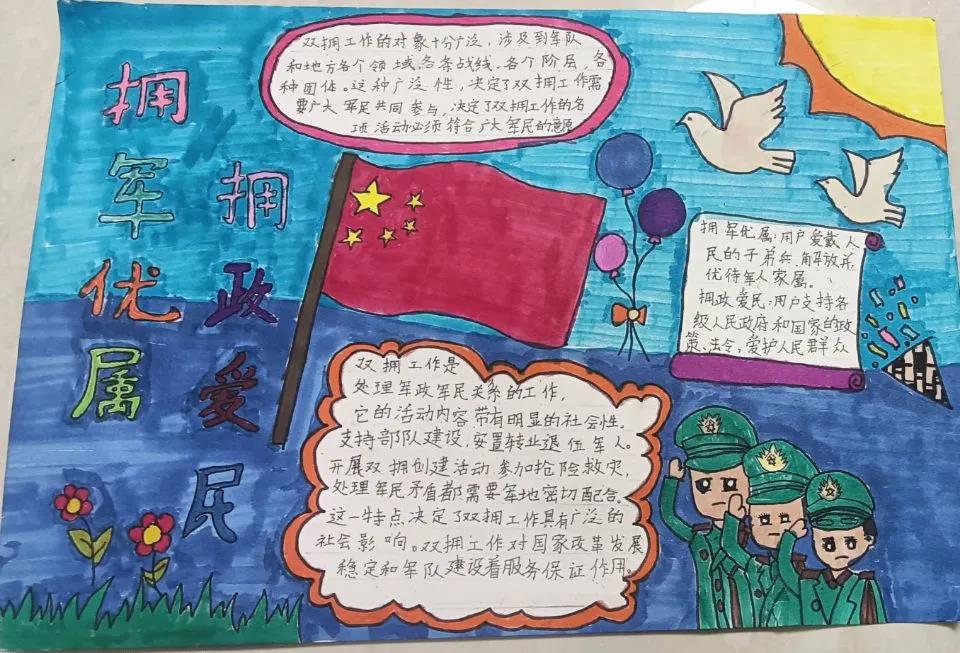 拥军优属
拥政爱民
双拥工作的对象十分广泛，涉及到军队
和地方各个领域、各条战线、各个阶层，各
种团体。这种广泛性，决定了双拥工作需
要广大军民共同参与，决定了双拥工作的各
项活动必须符合广大军民的意愿
拥军优属：用户爱戴人
民的子弟兵，解放军，
优待军人家属。
拥政爱民：用户支持各
级人民政府和国家的政
策、法令，爱护人民群众
双拥工作是
处理军政军民关系的工作，
它的活动内容带有明显的社会性。
支持部队建设，安置转业退伍军人。
开展双拥创建活动参加抢险救灾，
处理军民矛盾都需要军地密切配合。
这一特点决定了双拥工作具有广泛的
社会影响。双拥工作对国家改革发展
稳定和军队建设着服务保证作用。